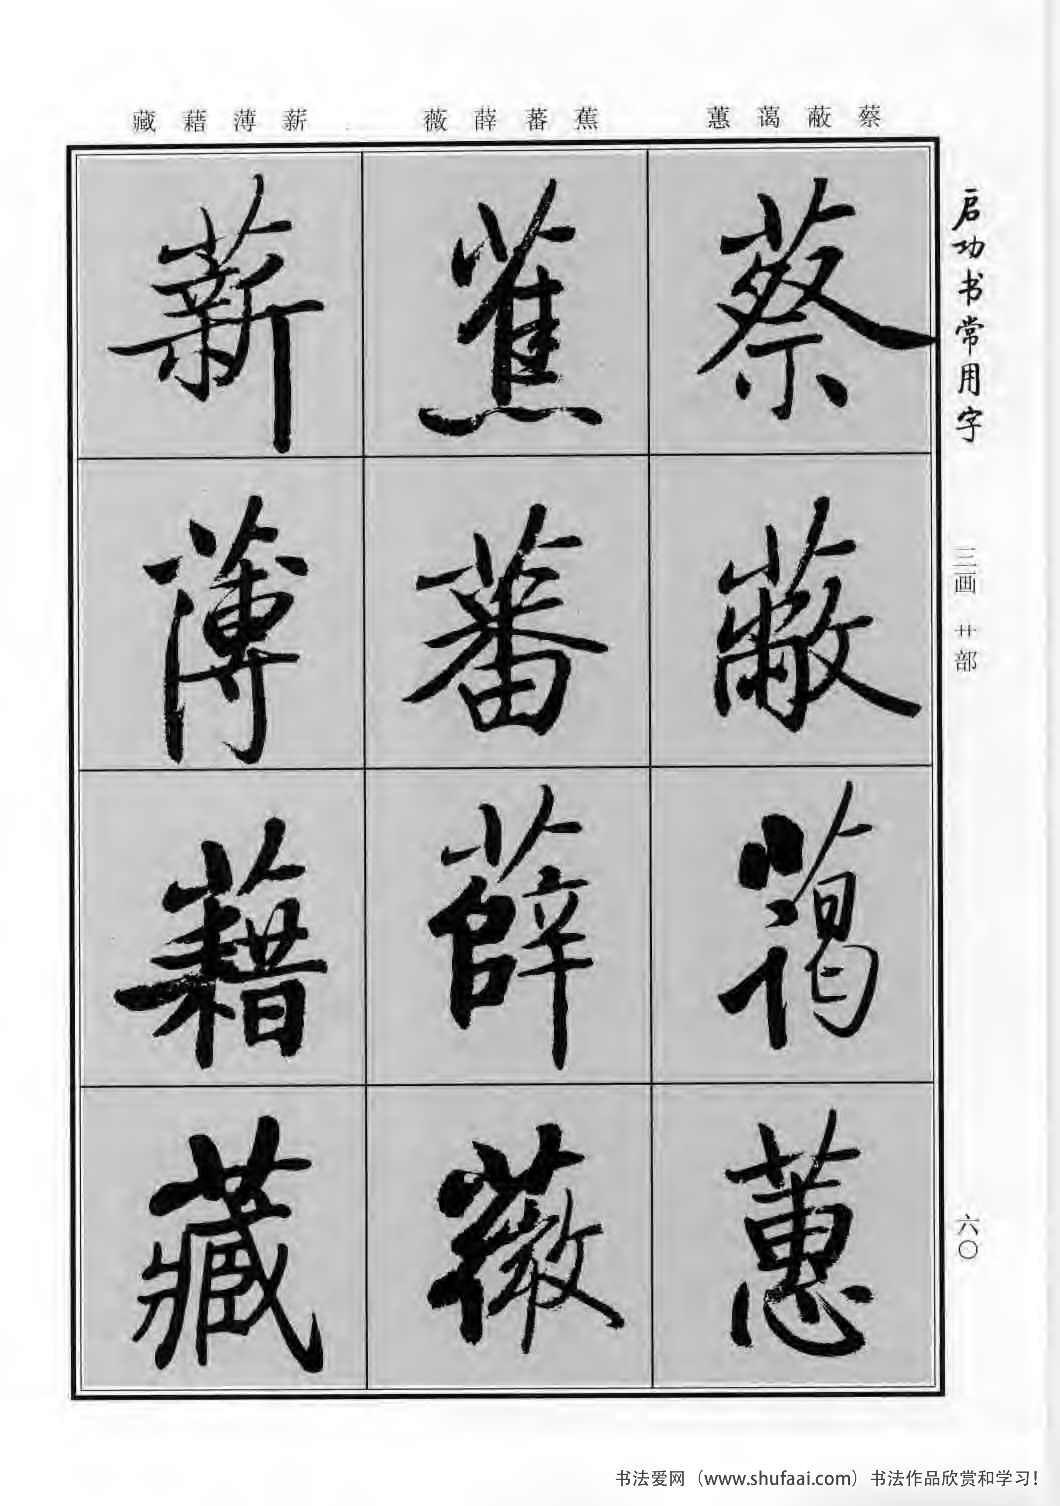 启功书常用字
三画 艹部
六〇
蔡蔽蔼蕙
蕉蕃薛薇
薪薄藉藏
蔡
蔽
蔼
蕙
蕉
蕃
薛
薇
薪
薄
藉
藏
书法爱网（www.shufaai.com）书法作品欣赏和学习！